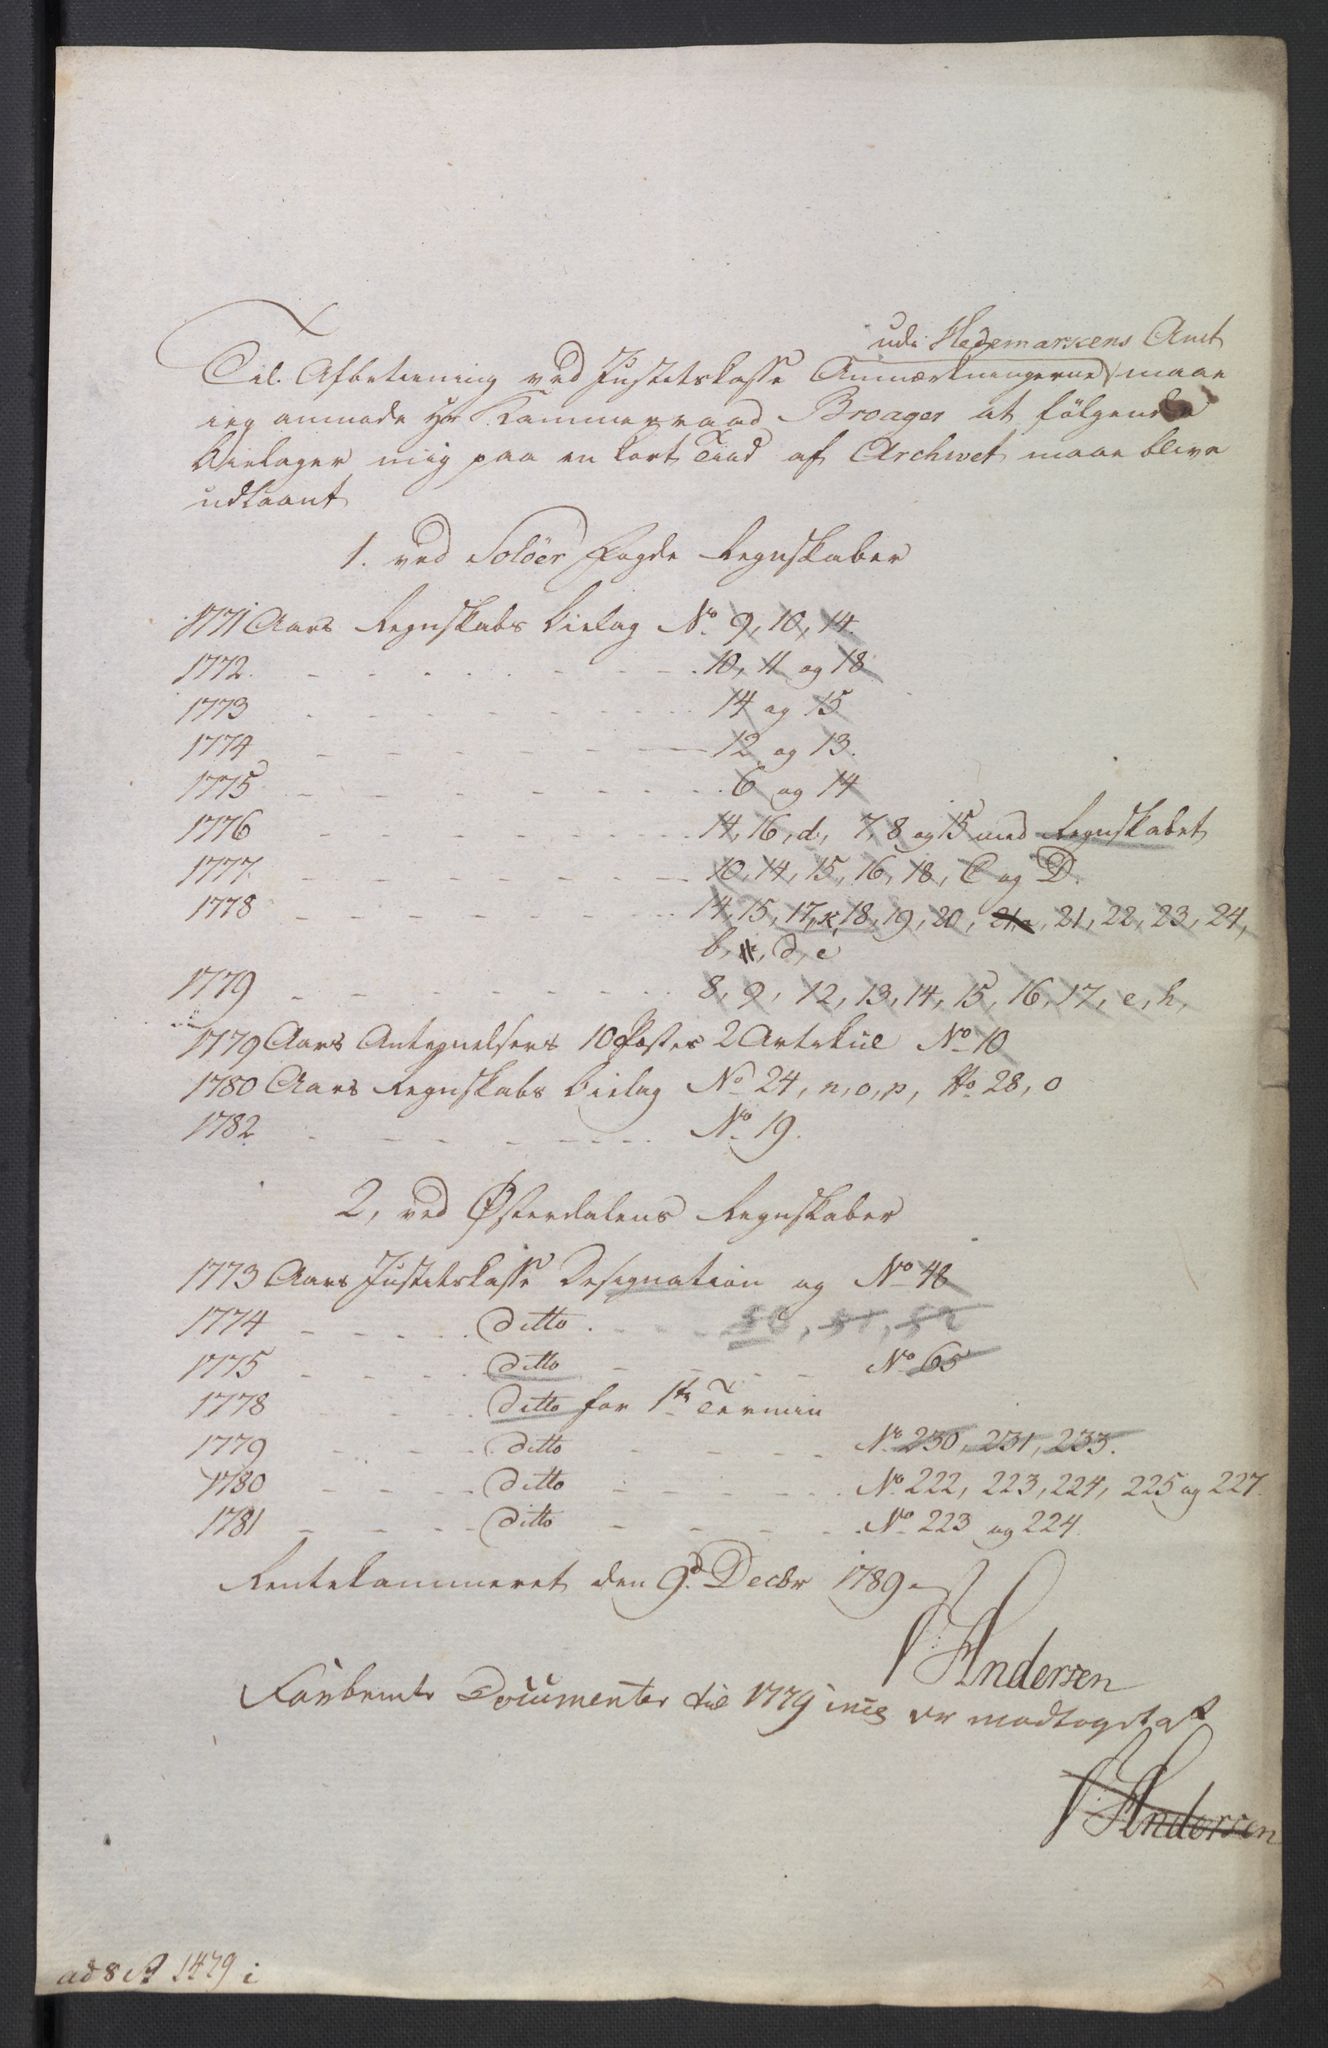 udi Hedemarkens Amt
Til Afbetiening ved Justitskasse Anmærkningerne maae
ieg anmode Hr Kammerraad Broager at følgende
Bielager mig paa en kort Tiid af Archivet maae blive
udlaant
1. ved Soløer Fogde Regnskaber
1771 Aars Regnskabs Bielag No. 9, 10, 14.
1772. - - - - - - - 10, 11 og 18
1773 - - - - - - - 14 og 15
1774 - - - - - - - 12 og 13.
1775 - - - - - - - 6 og 14
1776 - - - - - - - 14, 16, d, 7, 8 og 15 med Regnskabet
1777. - - - - - - - 10, 14, 15, 16, 18, C og D.
1778 - - - - - - - 14, 15, 17, x, 18, 19, 20, 21, 22, 23, 24,
b, d, e
1779 - - - - - - - 8, 9, 12, 13, 14, 15, 16, 17, e, h,
1779 Aars Antegnelsers 10 Postes 2 Artikul No 10
1780 Aars Regnskabs Bielag No 24, n, o, p, No 28, o
1782 - - - - - - - No 19.
2, ved Østerdalens Regnskaber
1773 Aars Justitskasse Designation og No 48
1774 - - - - ditto - - - 50, 51, 52
1775 - - - - ditto - - - - No 65
1778 ditto for 1te Termin
1779 - - - - ditto - - - - No 230, 231, 233.
1780 - - - - ditto - - - - No 222, 223, 224, 225 og 227.
1781 - - - - ditto - - - - No 223 og 224.
Rentekammeret den 9d Decbr 1789.
Andersen
Forbemte Documenter til 1779 incl er modtaget af
Andersen
ad 8 A 1479 i